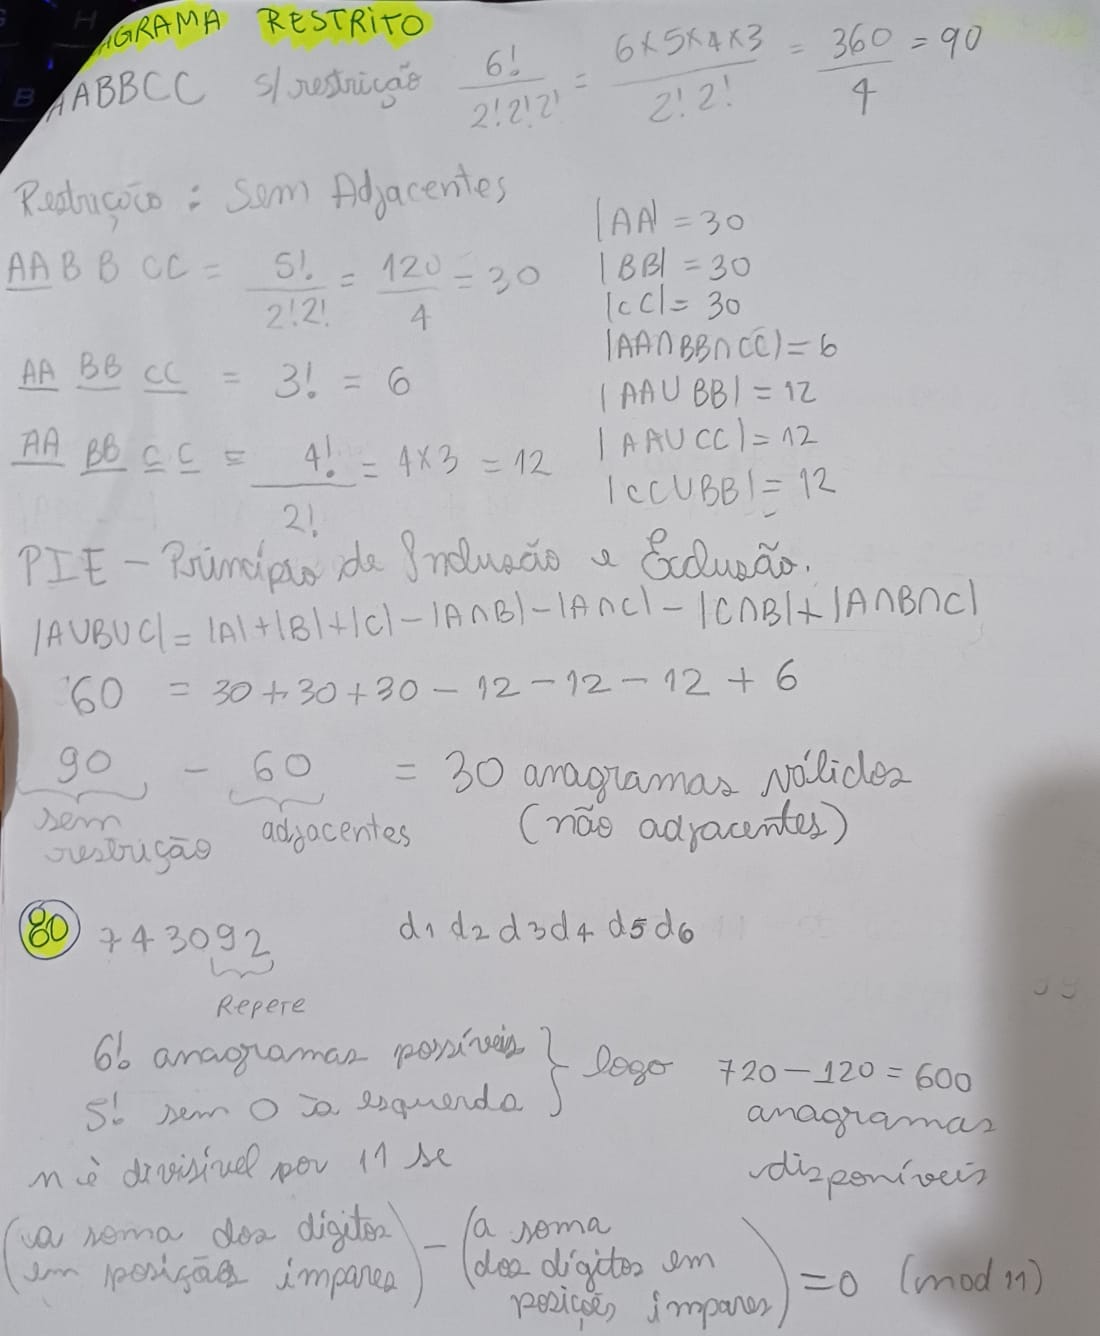 AGRAMA RESTRITO
AABBCC s/restrição 6!/2!2!2! = 6×5×4×3/2!2! = 360/4 = 90
Restrição: Sem Adjacentes
AA B B CC = 5!/2!2! = 120/4 = 30
|AA| = 30
|BB| = 30
|CC| = 30
AA BB CC = 3! = 6
|AA∩BB∩CC| = 6
|AA∪BB| = 12
AA BB C C = 4!/2! = 4×3 = 12
|AA∪CC| = 12
|CC∪BB| = 12
PIE - Princípio de Inclusão e Exclusão.
|A∪B∪C| = |A|+|B|+|C|-|A∩B|-|A∩C|-|C∩B|+|A∩B∩C|
60 = 30+30+30-12-12-12+6
90 - 60 = 30 anagramas válidos
sem restrição adjacentes (não adjacentes)
80 743092 d1 d2 d3 d4 d5 d6
Repere
6! anagramas possíveis
5! sem 0 à esquerda
logo 720-120=600
anagramas
disponíveis
n é divisível por 11 se
(a soma dos dígitos em posição ímpares) - (a soma dos dígitos em posições ímpares) = 0 (mod 11)